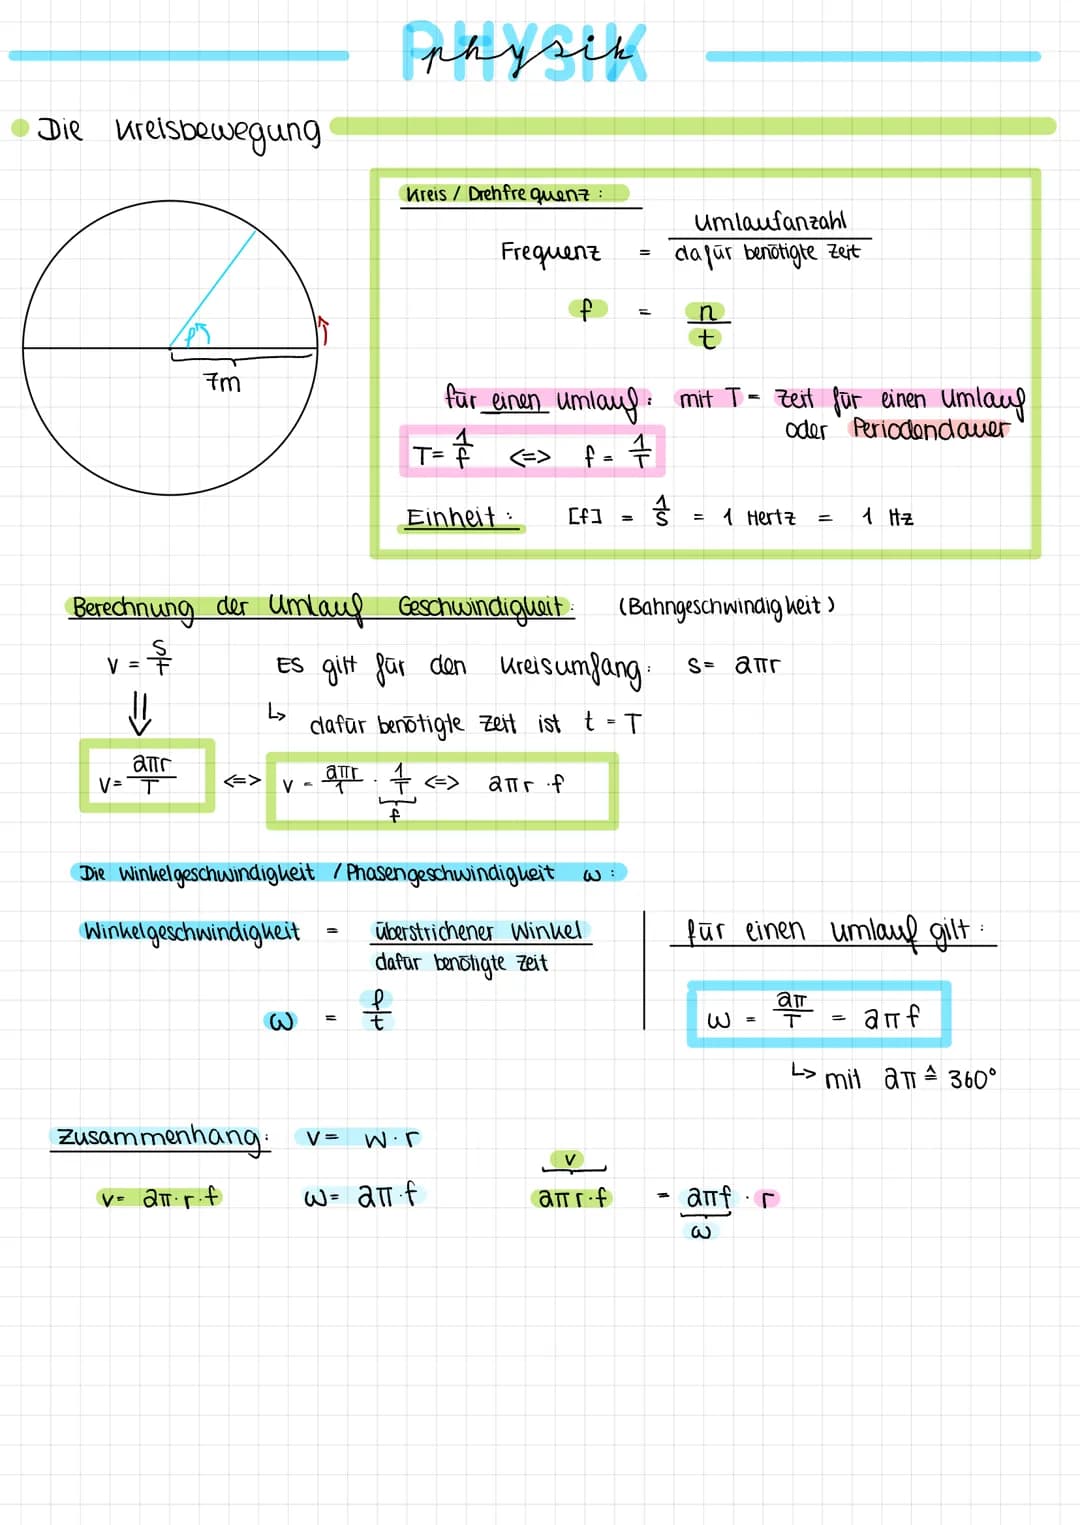 PHYSIK
physik
Die Kreisbewegung
φ
7m
Kreis / Drehfrequenz :
Frequenz = Umlaufanzahl / dafür benötigte Zeit
f = n / t
für einen Umlauf: mit T = Zeit für einen Umlauf
oder Periodendauer
T = 1/f <=> f = 1/T
Einheit : [f] = 1/s = 1 Hertz = 1 Hz
Berechnung der Umlauf Geschwindigkeit: (Bahngeschwindigkeit)
v = s/T Es gilt für den Kreisumfang: s = 2πr
↳ dafür benötigte Zeit ist t = T
v = 2πr/T <=> v = 2πr/1 · 1/T <=> 2πr · f
f
Die Winkelgeschwindigkeit / Phasengeschwindigkeit ω :
Winkelgeschwindigkeit = überstrichener Winkel / dafür benötigte Zeit
ω = φ/t
für einen Umlauf gilt :
ω = 2π/T = 2πf
↳ mit 2π ≙ 360°
Zusammenhang: v = w · r
v = 2π · r · f ω = 2π · f
v
2πr · f = 2πf · r
ω